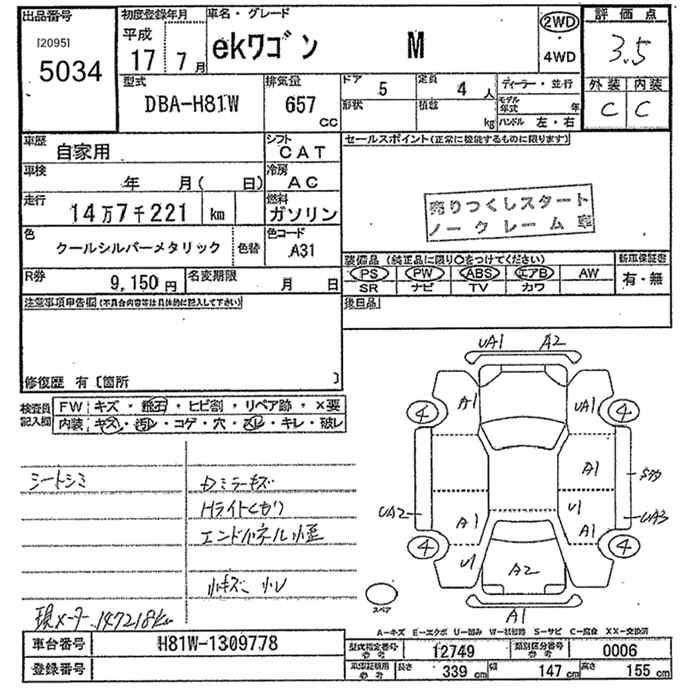 出品番号
120951
5034
初度登録年月
平成
17 7月
車名・グレード
ekワゴン M
2WD
・
4WD
評価点
3.5
外装 内装
C C
型式
DBA-H81W
排気量
657
CC
ドア 5
定員 4人
形状
積載 kg
ディーラー・並行
モデル年式 年
ハンドル 左・右
車歴
自家用
シフト
CAT
セールスポイント(正常に機能するものに限ります)
車検
年 月( 日)
冷房
AC
走行
14万7千221 km
燃料
ガソリン
売りつくしスタート
ノークレーム
色
クールシルバーメタリック
色替
色コード
A31
R券
9,150円
名変期限
月 日
装備品(純正品に限り○をつけてください)
PS PW ABS エアB AW
SR ナビ TV カワ
新車保証書
有・無
注意事項申告欄(不具合内容等は具体的に記入して下さい)
後日品
修復歴 有〔箇所 〕
検査員記入欄
FW キズ・飛石・ヒビ割・リペア跡・×要
内装 キズ・汚レ・コゲ・穴・スレ・キレ・破レ
シートシミ
Dミラーキズ
Hライトくもり
エンドパネル小歪
小キズ 小凹
現メーター147218km
UA1 A2
A1 UA1
4 4
A1
UA2 A1 U1 A1 UA3
4 4
U1
A2
A1
スペア
A-キズ E-エクボ U-凹み W-波 S-サビ C-腐食 XX-交換済
車台番号
H81W-1309778
登録番号
型式指定番号 参考
12749
類別区分番号 参考
0006
車検証明用 参考
長さ 339cm
幅 147cm
高さ 155cm